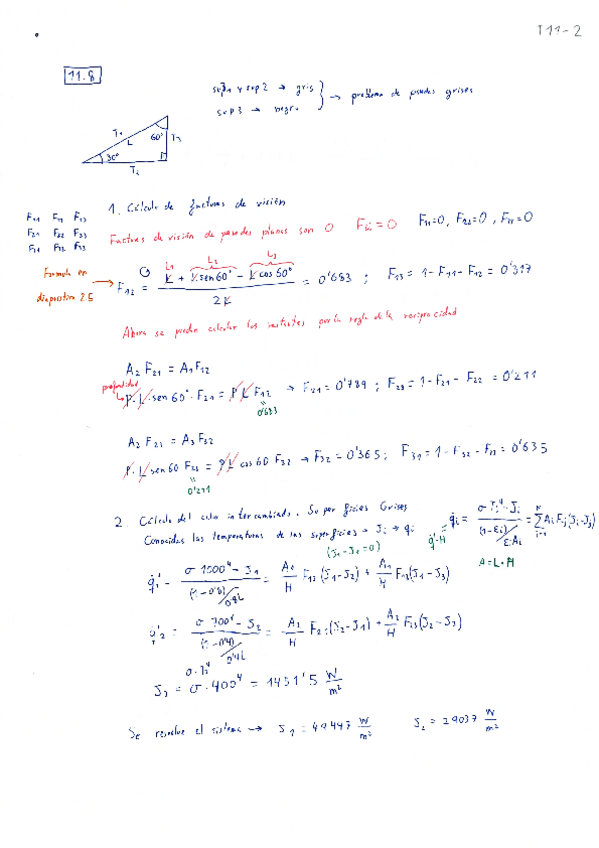 T11-2
11.8
sup1 y sup2 → gris
sup3 → negra
→ problema de paredes grises
T1
L
60°
T3
30°
T2
1. Cálculo de factores de visión
F11 F12 F13
F21 F22 F23
F31 F32 F33
Factores de visión de paredes planas son 0 Fii=0 F11=0, F22=0, F33=0
Formula en
diapositiva 25
L1 L2 L3
F12 = (L + L sen60° - L cos60°) / 2L = 0'683 ; F13 = 1-F11-F12 = 0'317
Ahora se pueden calcular los restantes por la regla de la reciprocidad
A2 F21 = A1 F12
profundidad
P·L·sen60°·F21 = P L F12 → F21=0'789 ; F23=1-F21-F22=0'211
0'683
A2 F23 = A3 F32
P·L sen60 F23 = P L cos60 F32 → F32=0'365 ; F31=1-F32-F33=0'635
0'211
2. Cálculo del calor intercambiado. Superficies Grises
Conocidas las temperaturas de las superficies → Ji → qi
q̇i = (σTi⁴-Ji) / ((1-εi)/(εi Ai)) = Σ Ai Fij(Ji-Jj)
(J1-J1=0)
A=L·H
q̇1' = (σ 1000⁴ - J1) / ((1-0'8)/0'8L) = A1/H F12(J1-J2) + A1/H F13(J1-J3)
q̇2' = (σ 700⁴ - J2) / = A2/H F21(J2-J1) + A2/H F23(J2-J3)
J3 = σ·400⁴ = 1451'5 W/m²
Se resuelve el sistema → J1 = 49447 W/m² J2 = 29037 W/m²